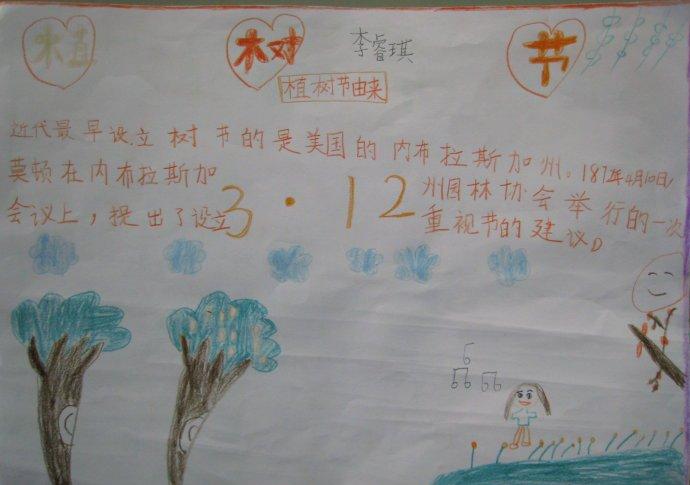 植 树 节
李睿琪
植树节由来
近代最早设立树节的是美国的内布拉斯加州。1872年4月10日,
莫顿在内布拉斯加州园林协会举行的一次
会议上，提出了设立重视节的建议。
3·12